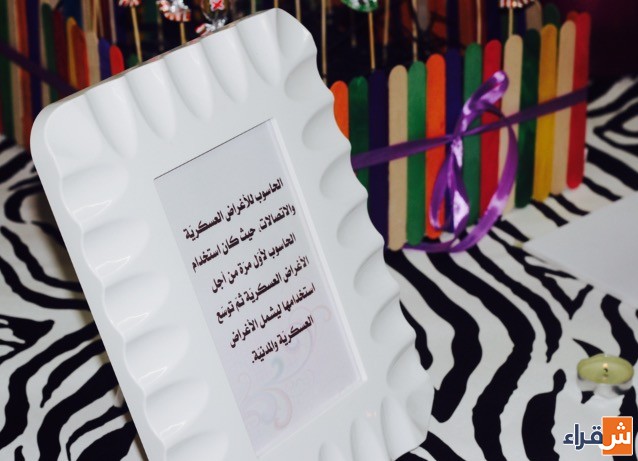 الحاسوب للأغراض العسكرية
والاتصالات، حيث كان استخدام
الحاسوب لأول مرة من أجل
الأغراض العسكرية ثم توسع
استخدامها ليشمل الأغراض
العسكرية والمدنية.
شقراء